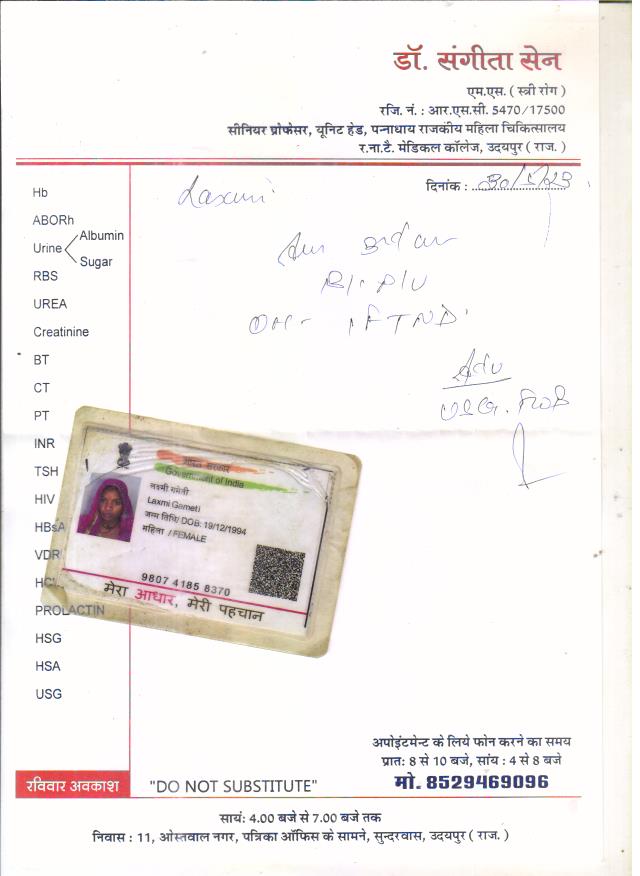 डॉ. संगीता सेन
एम.एस. ( स्त्री रोग )
रजि. नं. : आर.एस.सी. 5470/17500
सीनियर प्रोफेसर, यूनिट हेड, पन्नाधाय राजकीय महिला चिकित्सालय
र.ना.टै. मेडिकल कॉलेज, उदयपुर ( राज. )
दिनांक :
Laxmi
Hb
ABORh
Urine
Albumin
Sugar
RBS
UREA
Creatinine
BT
CT
PT
INR
TSH
HIV
HBsA
VDR
HC
PROLACTIN
HSG
HSA
USG
OH - 1FTND
Adv
USG. FWB
भारत सरकार
Government of India
लक्ष्मी गमेती
Laxmi Gameti
जन्म तिथि/ DOB: 19/12/1994
महिला / FEMALE
9807 4185 8370
मेरा आधार, मेरी पहचान
अपोइंटमेन्ट के लिये फोन करने का समय
प्रातः 8 से 10 बजे, सांय : 4 से 8 बजे
मो. 8529469096
रविवार अवकाश
"DO NOT SUBSTITUTE"
सायं: 4.00 बजे से 7.00 बजे तक
निवास : 11, ओस्तवाल नगर, पत्रिका ऑफिस के सामने, सुन्दरवास, उदयपुर ( राज. )